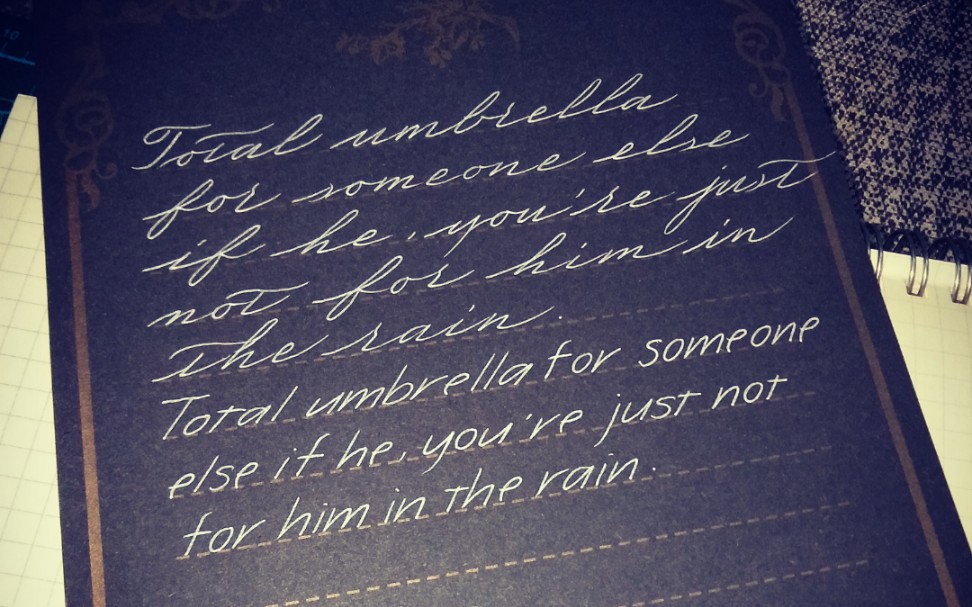 Total umbrella
for someone else
if he, you're just
not for him in
the rain.
Total umbrella for someone
else if he, you're just not
for him in the rain.